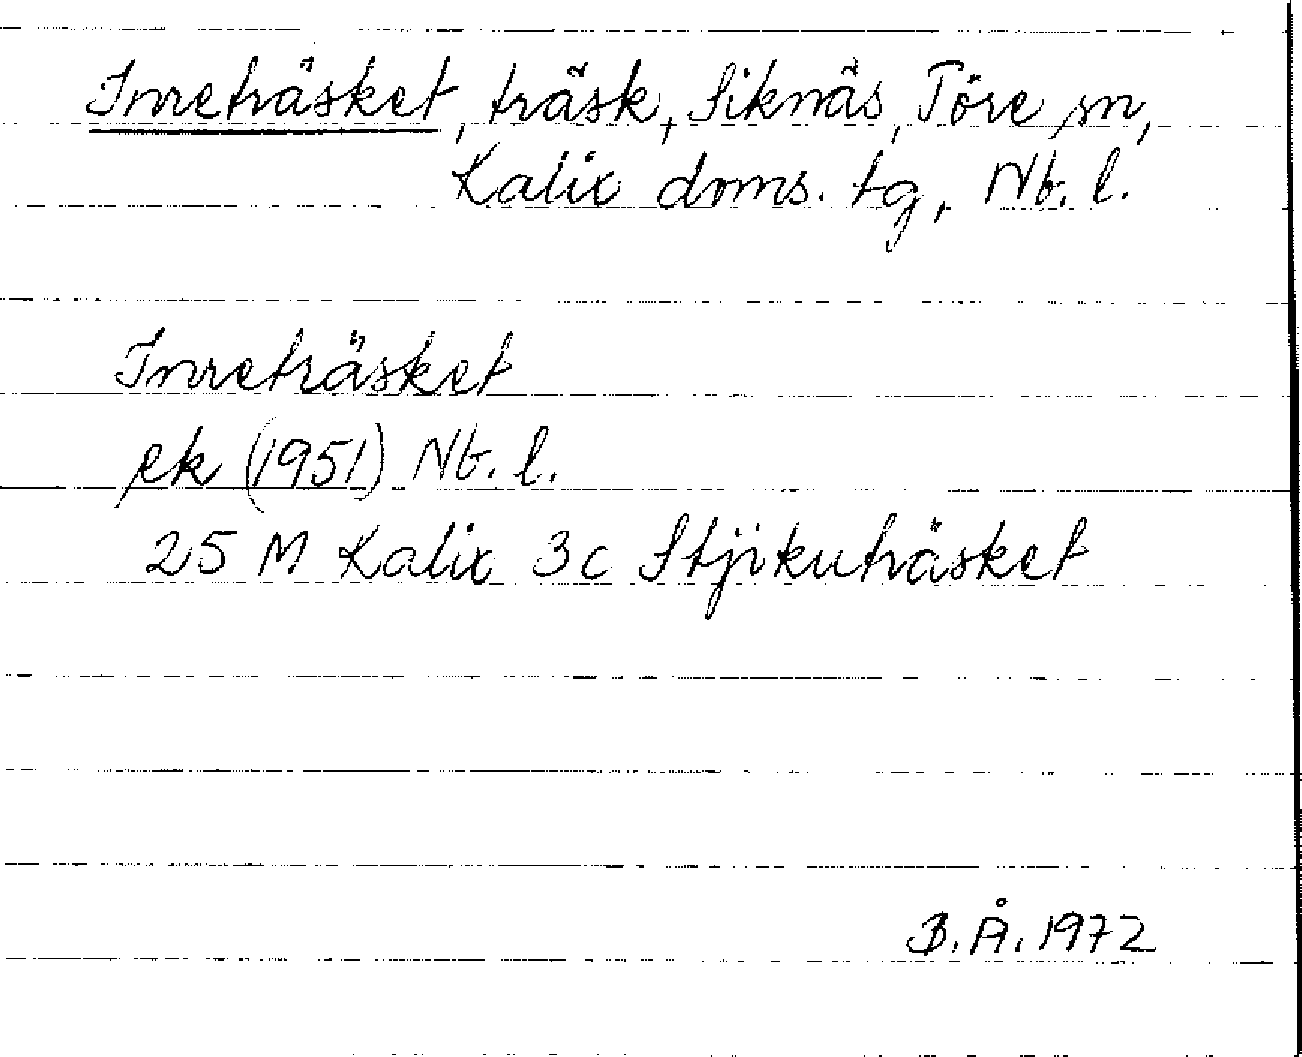 Inreträsket, träsk, Siknäs, Töre sn,
Kalix doms. tg, Nb. l.
Inreträsket
ek (1951) Nb. l.
25 M Kalix 3c Stjikuträsket
B. Å. 1972